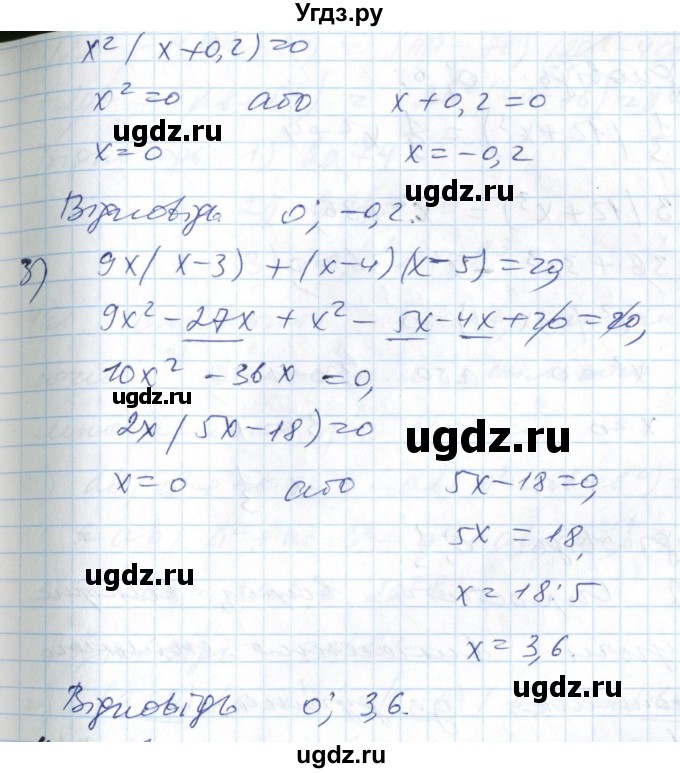 Угдз.ру
x² (x+0,2)=0
x²=0 або x+0,2=0
ugdz.ru
x=0 x=-0,2
ugdz.ru
Відповідь 0; -0,2.
3) 9x(x-3) + (x-4)(x-5)=20,
9x² - 27x + x² - 5x - 4x + 20 = 20,
10x² - 36x = 0,
ugdz.ru
2x(5x-18)=0
ugdz.ru
x=0 або 5x-18=0,
5x = 18,
ugdz.ru
x=18:5
ugdz.ru
x=3,6.
ugdz.ru
Відповідь 0; 3,6.
ugdz.ru